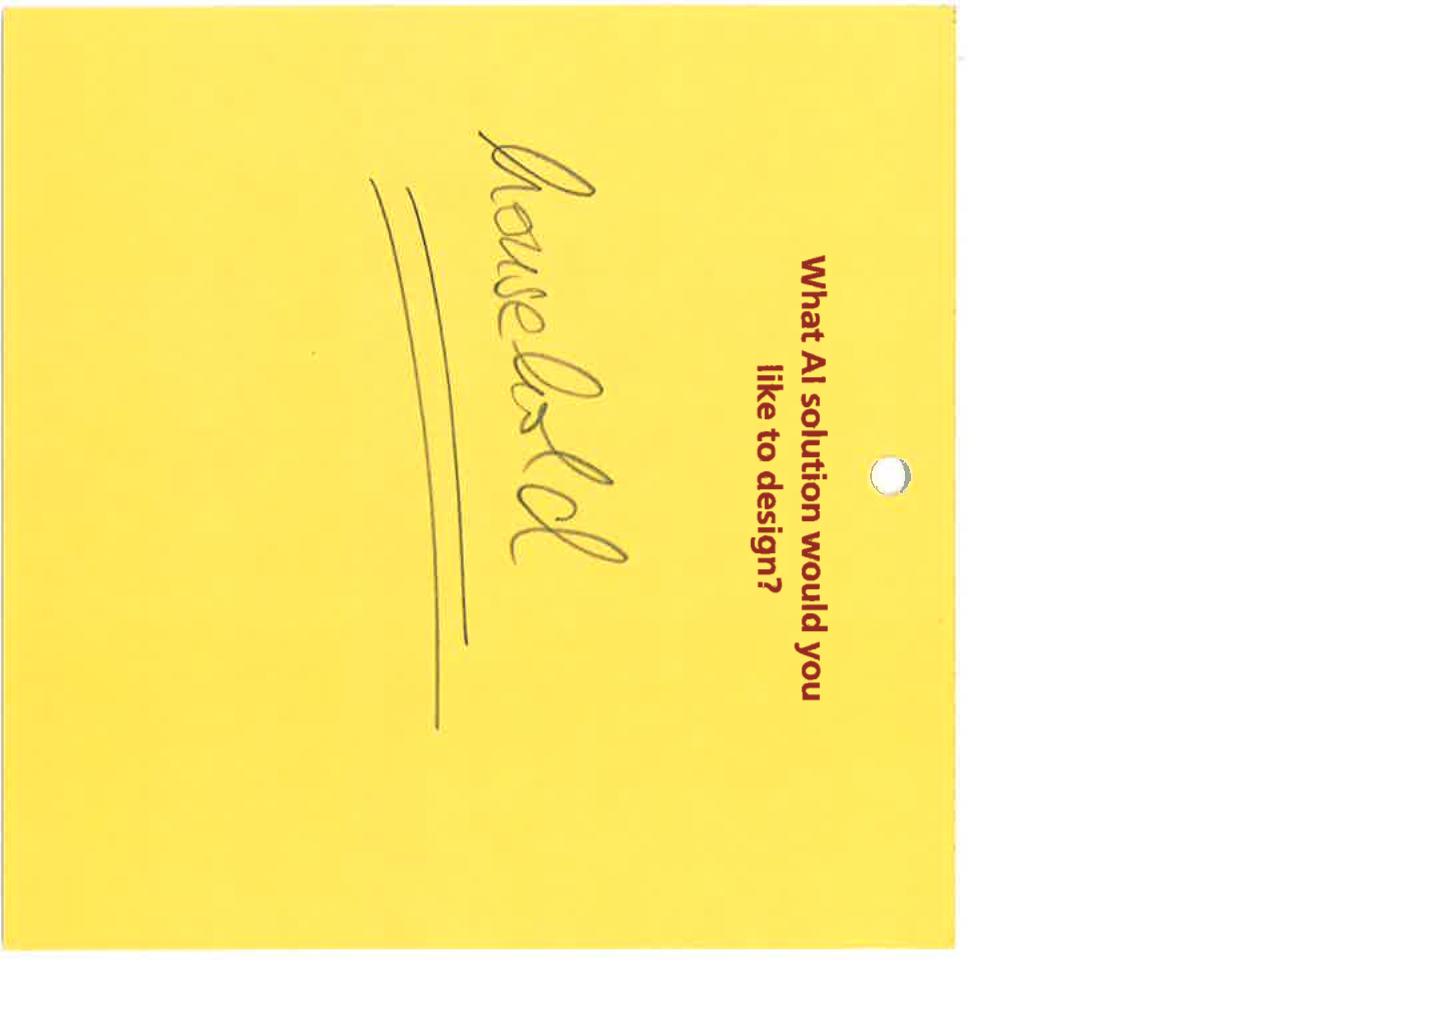 What AI solution would you
like to design?
household